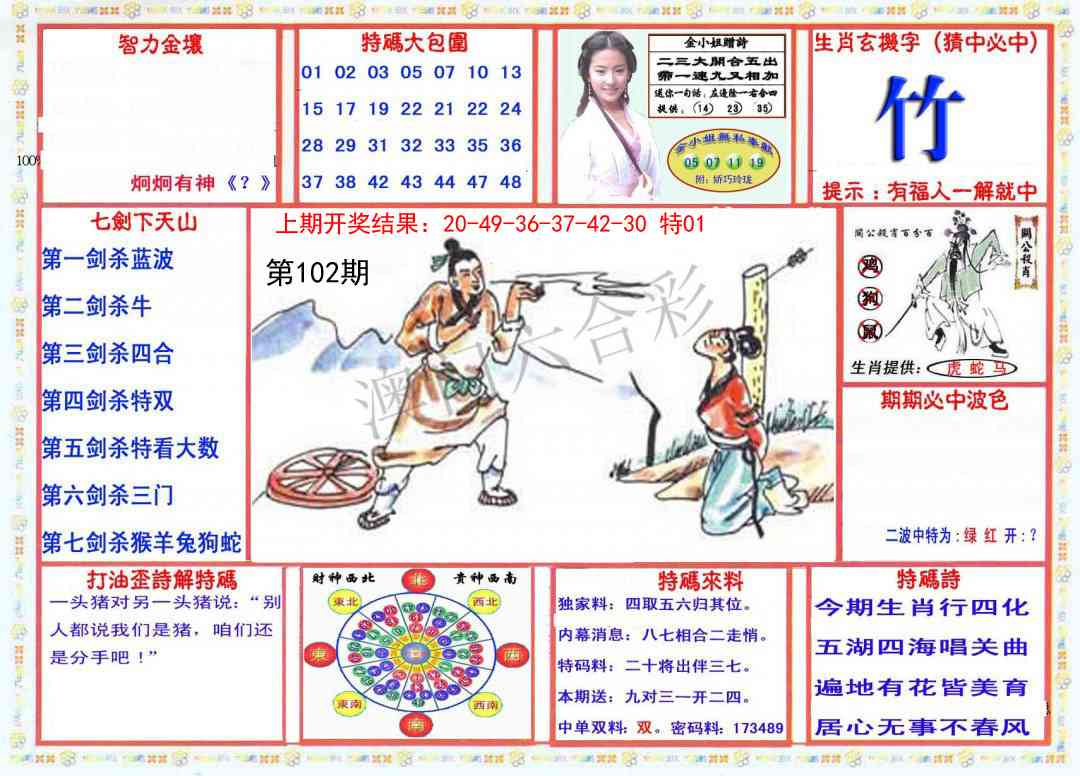 智力金壤
100%
炯炯有神《？》
特碼大包圍
01 02 03 05 07 10 13
15 17 19 22 21 22 24
28 29 31 32 33 35 36
37 38 42 43 44 47 48
金小姐贈詩
二三大開合五出
第一連九又相加
送你一句話，左邊除一右合四
提供：（14） 23） 35）
金小姐無私奉獻
05 07 11 19
附：娇巧玲珑
生肖玄機字（猜中必中）
竹
提示：有福人一解就中
七劍下天山
第一剑杀蓝波
第二剑杀牛
第三剑杀四合
第四剑杀特双
第五剑杀特看大数
第六剑杀三门
第七剑杀猴羊兔狗蛇
上期开奖结果：20-49-36-37-42-30 特01
第102期
六合彩
關公殺肖百分百
關公殺肖
鸡
狗
鼠
生肖提供：虎 蛇 马
期期必中波色
二波中特为：绿 红 开：？
打油歪詩解特碼
一头猪对另一头猪说：“别
人都说我们是猪，咱们还
是分手吧！”
財神西北
貴神西南
北
東北
西北
東
西
東南
西南
南
特碼來料
独家料：四取五六归其位。
内幕消息：八七相合二走悄。
特码料：二十将出伴三七。
本期送：九对三一开二四。
中单双料：双。密码料：173489
特碼詩
今期生肖行四化
五湖四海唱关曲
遍地有花皆美育
居心无事不春风